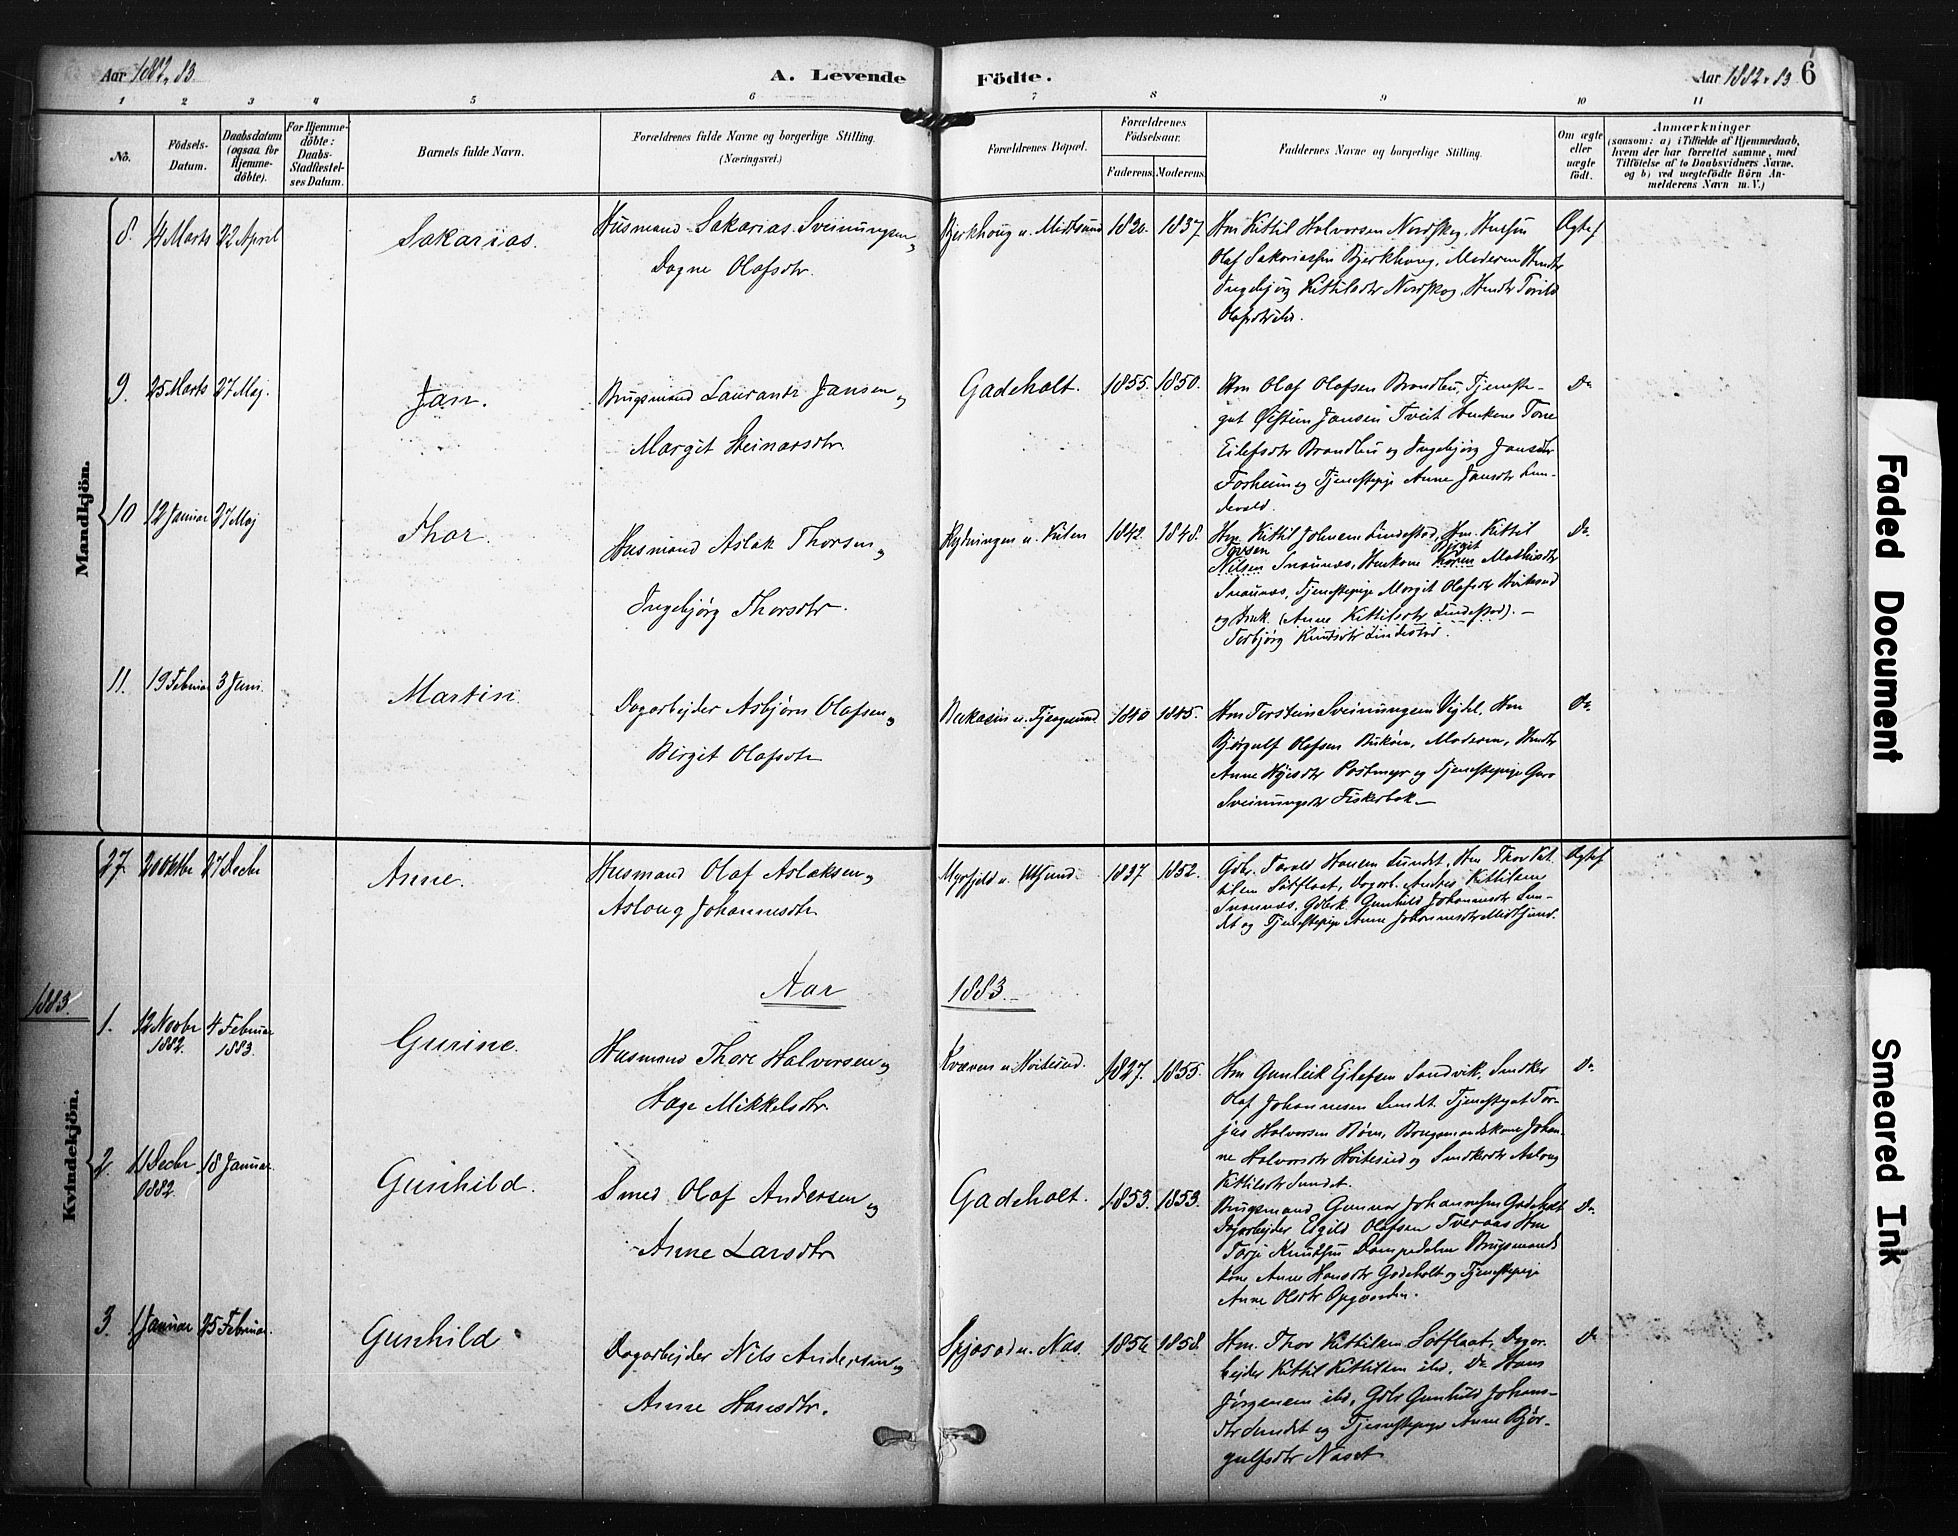 Aar 1882, 83
A. Levende
Födte.
Aar 1882, 83
6
1 2 3 4 5 6 7 8 9 10 11
No.
Födsels-
Datum.
Daabsdatum
(ogsaa for
Hjemme-
döbte).
For Hjemme-
döbte:
Daabs-
Stadfæstel-
ses Datum.
Barnets fulde Navn.
Forældrenes fulde Navne og borgerlige Stilling.
(Næringsvei.)
Forældrenes Bopæl.
Forældrenes
Födselsaar.
Faderens. Moderens.
Faddernes Navne og borgerlige Stilling.
Om ægte
eller
uægte
födt.
Anmærkninger
(saasom: a) i Tilfælde af Hjemmedaab,
hvem der har forrettet samme, med
Tilföielse af to Daabsvidners Navne,
og b) ved uægtefödte Börn An-
melderens Navn m. V.)
Mandkjön.
8. 4 Marts 22 April
Sakarias.
Husmand Sakarias Sveinungsen og
Dagne Olafsdtr.
Bjerkhoug u. Midtsund 1820. 1837.
Hm Kittil Halvorsen Nordskog,
Olaf Sakariassen Bjerkhoug, Moderen
Ingebjørg Kittilsdtr Nordskog, Torild
Olafsdtr ibd.
Ægtef
9. 25 Marts 27 Maj.
Jan.
Brugsmand Laurants Jansen og
Margit Steinarsdtr.
Gadeholt. 1855. 1850.
Hm Olaf Olafsen Brandbu, Tjeneste-
gut Øistein Jansen Tveit Hmkone Tone
Eilefsdtr Brandbu og Ingebjørg Jansdtr
Forheim og Tjenestepige Anne Jansdtr Lun-
devald.
Do
10 12 Januar 27 Maj
Thor.
Husmand Aslak Thorsen og
Ingebjørg Thorsdtr.
Rytningen u. Kilen 1842. 1848.
Hm. Kittil Johnsen Lindestad, Hm. Kittil
Tovsen Birgit
Nilsen Snaunæs, Hmkone Karen Mathisdtr
Snaunæs, Tjenestepige Margit Olafsdtr
og (Anne Kittilsdtr Lindestad). —
Torbjørg Knudsdtr Lindestad.
Do
11. 19 Februar 3 Juni.
Martin
Dagarbejder Asbjørn Olafsen og
Birgit Olafsdtr
1840 1845.
Hm Torstein Sveinungsen Vejdel, Hm
Bjørgulf Olafsen, Moderen,
Anne Postmyr og Tjenestepige Guro
Sveinungsdtr Fiskerbak —
Do
Kvindekjön.
27. 20 Oktbr 27 Decbr
Anne.
Husmand Olaf Aslaksen og
Aslaug Johannesdtr
Myrfjeld u. 1837 1852.
Gdbr. Tarald Hansen Lundet, Hm Thor Kit-
tilsen Løtflaat, Dagarb. Anders Kittilsen
Snaunæs, Gdbrk. Gunhild Johannesdtr Lun-
det og Tjenestepige Anne Johannesdtr Midtsund.
Ægtef
Aar 1883.
1883.
1. 12 Novbr 4 Februar
1882. 1883.
Gurine.
Husmand Thore Halvorsen og
Hæge Mikkelsdtr.
Kværnen u. Høitesund. 1827. 1855.
Hm Gunleik Ejlefsen Sandvik, Snedker
Olaf Johannesen Lundet, Tjenestegut Tor-
jus Halvorsen Røen, Brugsmandskone Johan-
ne Halvorsdtr Høitesund og Snedkerdtr Aslaug
Kittilsdtr Lundet.
Do
2. 11 Decbr 18 Januar.
1882.
Gunhild.
Smed Olaf Andersen og
Anne Larsdtr
Gadeholt. 1853. 1853.
Brugsmand Gunnar Johannesen Gadeholt
Dagarbejder Eigild Olafsen Tveraas Hm
Torje Knudsen Dampedalen Brugsmands
kone Anne Hansdtr Gadeholt og Tjenestepige
Anne Olsdtr Opgaarden.
Do
3. 1 Januar 25 Februar.
Gunhild
Dagarbejder Nils Andersen og
Anne Hansdtr.
Spjosod u. Næs. 1856 1858.
Hm. Thor Kittilsen Løtflaat, Dagar-
bejder Kittil Kittilsen ibd. Do Hans
Jørgensen ibd, Gdbr Gunhild Johans-
dtr Lundet og Tjenestepige Anne Bjør-
gulfsdtr Næset
Do
Faded Document
Smeared Ink